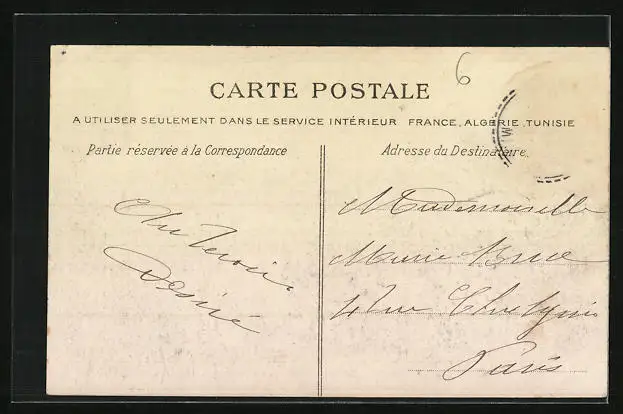 6
CARTE POSTALE
A UTILISER SEULEMENT DANS LE SERVICE INTÉRIEUR FRANCE, ALGERIE, TUNISIE
Partie réservée à la Correspondance
Adresse du Destinataire.
Au Revoir
Désiré
Mademoiselle
Marie
4 Rue
Paris